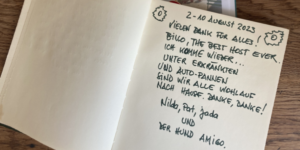 2-10 AUGUST 2023
VIELEN DANK FÜR ALLES!
BILLO, THE BEST HOST EVER.
ICH KOMME WIEDER...
UNTER ERKRANKTEN
UND AUTO-PANNEN
SIND WIR ALLE WOHLAUF
NACH HAUSE. DANKE, DANKE!
Nildo, Pat, Jada
UND
DER HUND AMIGO.